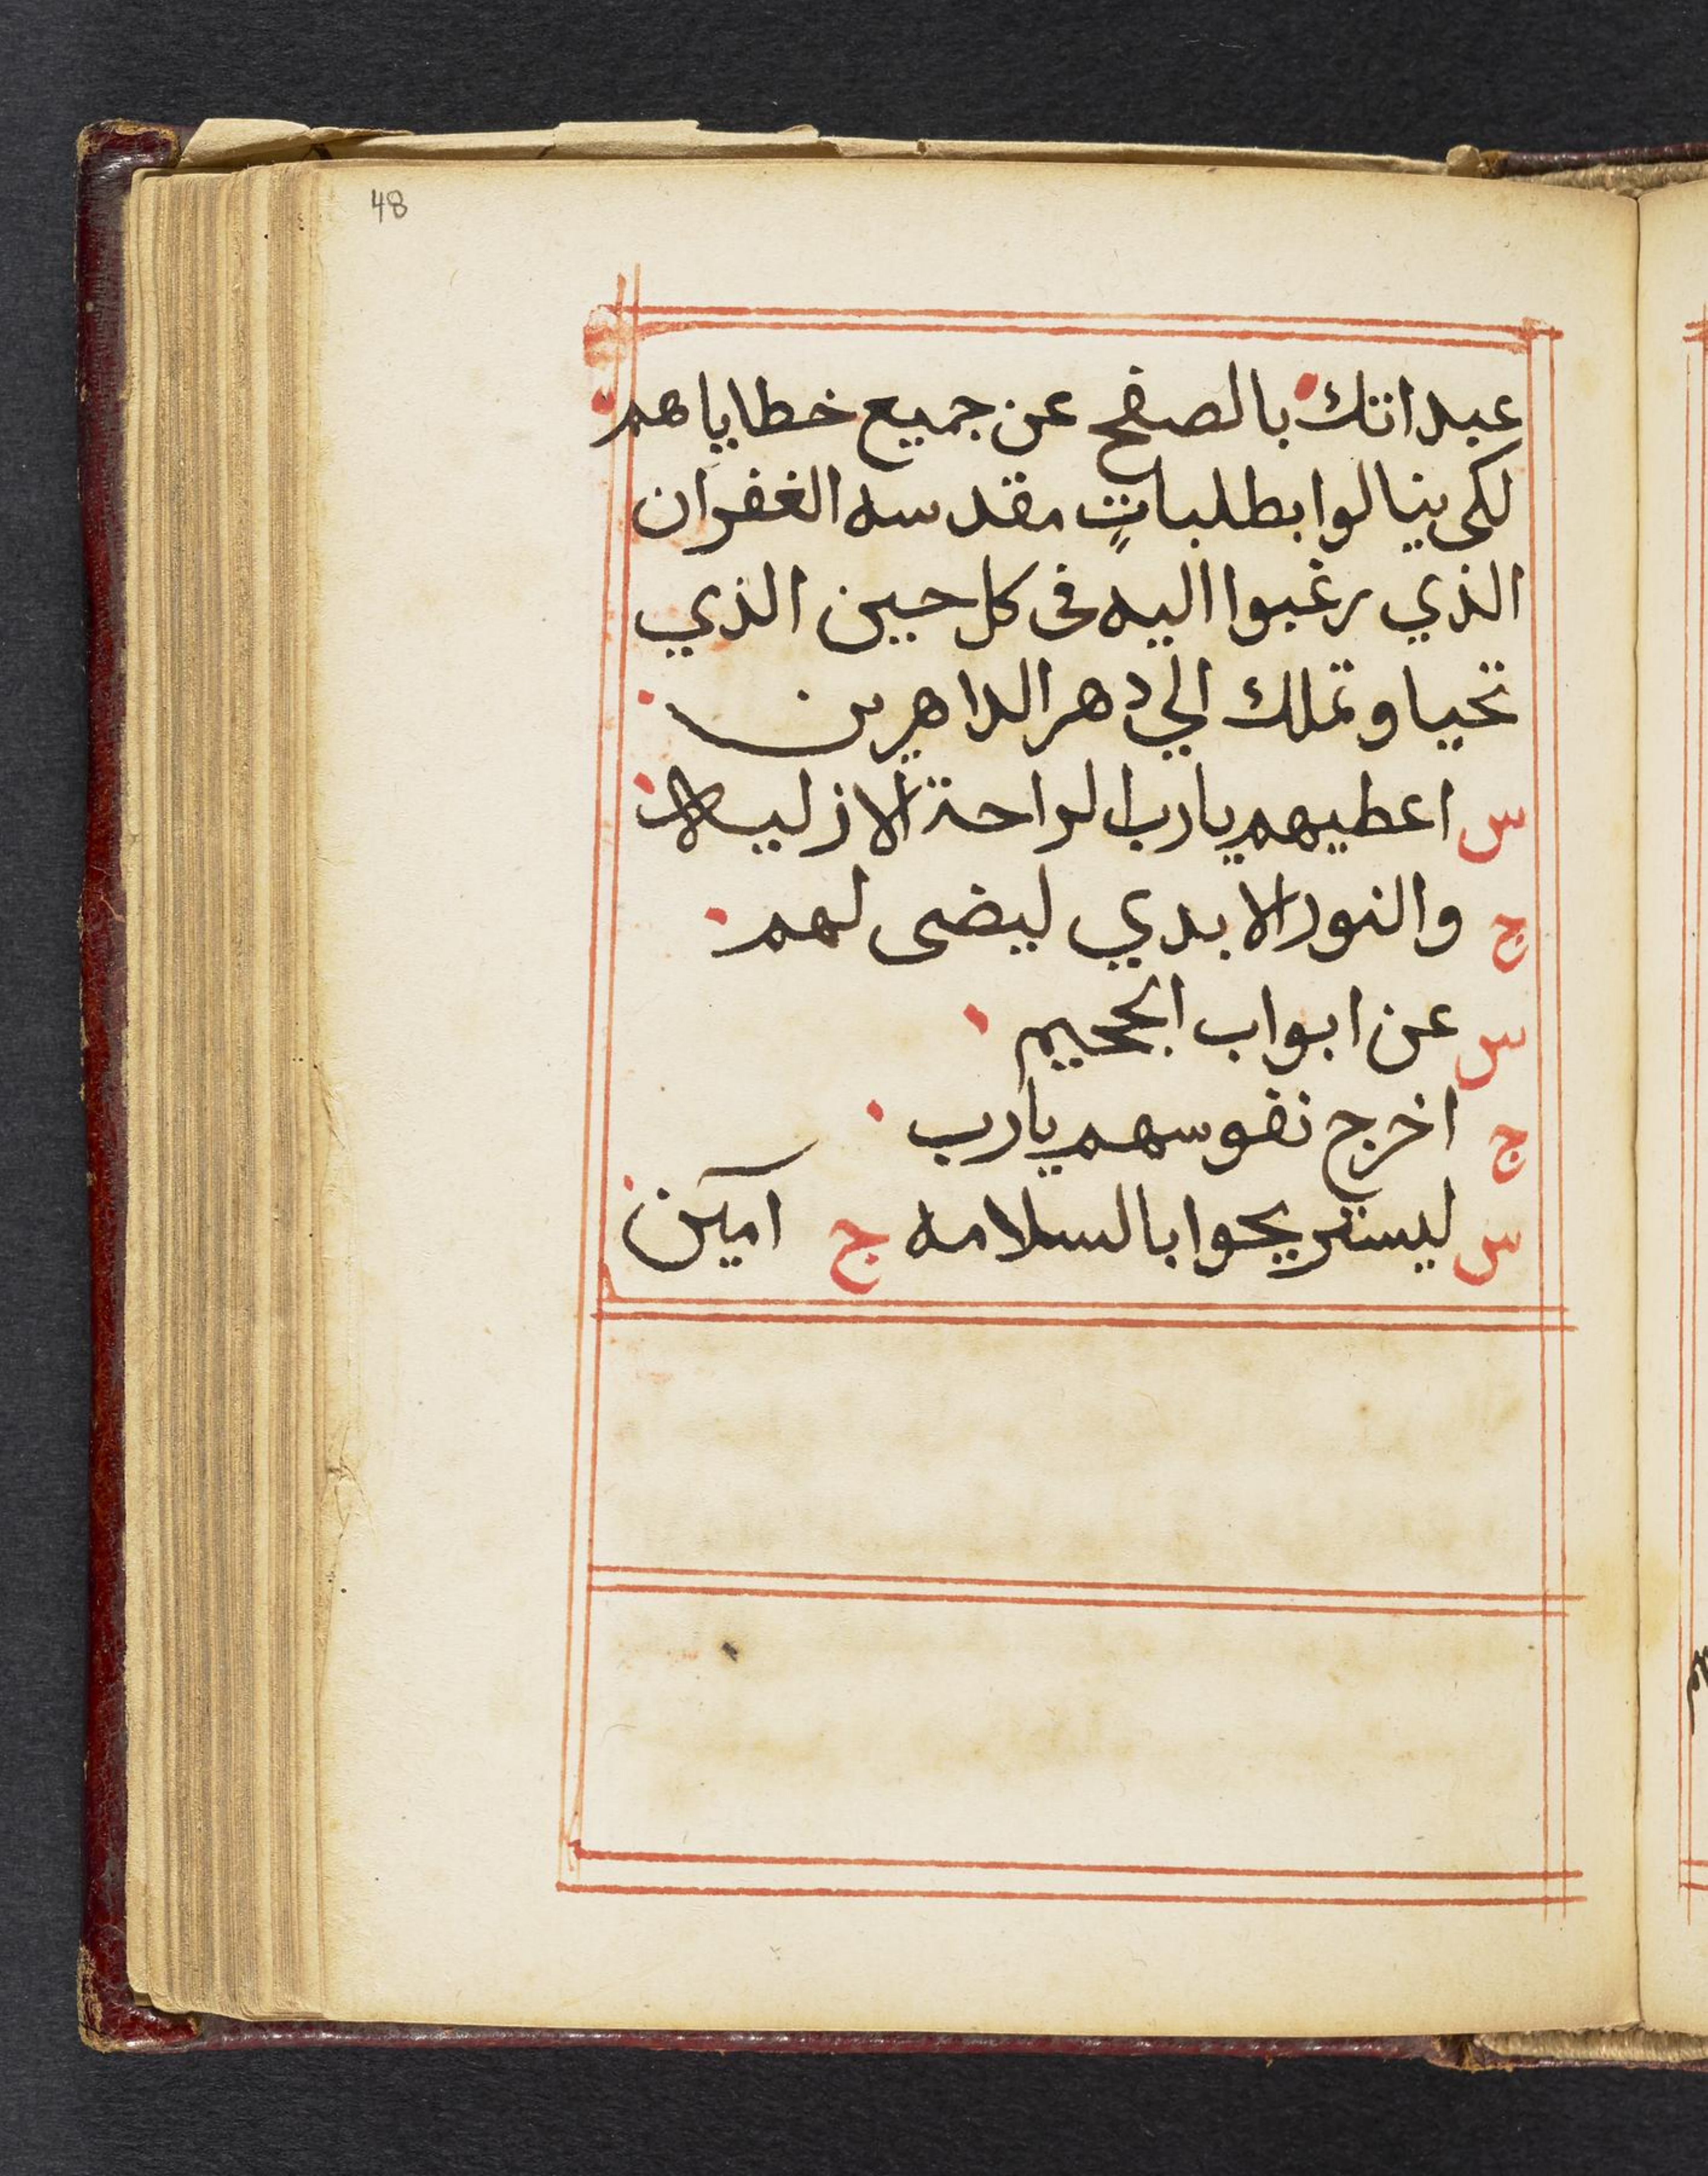 48
عبداتك بالصفح عن جميع خطاياهم
لكى ينالوا بطلباتٍ مقدسه الغفران
الذي رغبوا اليه فى كل حين الذي
تحيا وتملك الي دهر الداهرين
س اعطيهم يارب الراحة الازليه
ج والنور الابدي ليضى لهم
س عن ابواب الجحيم
ج اخرج نفوسهم يارب
س ليستريحوا بالسلامه ج آمين